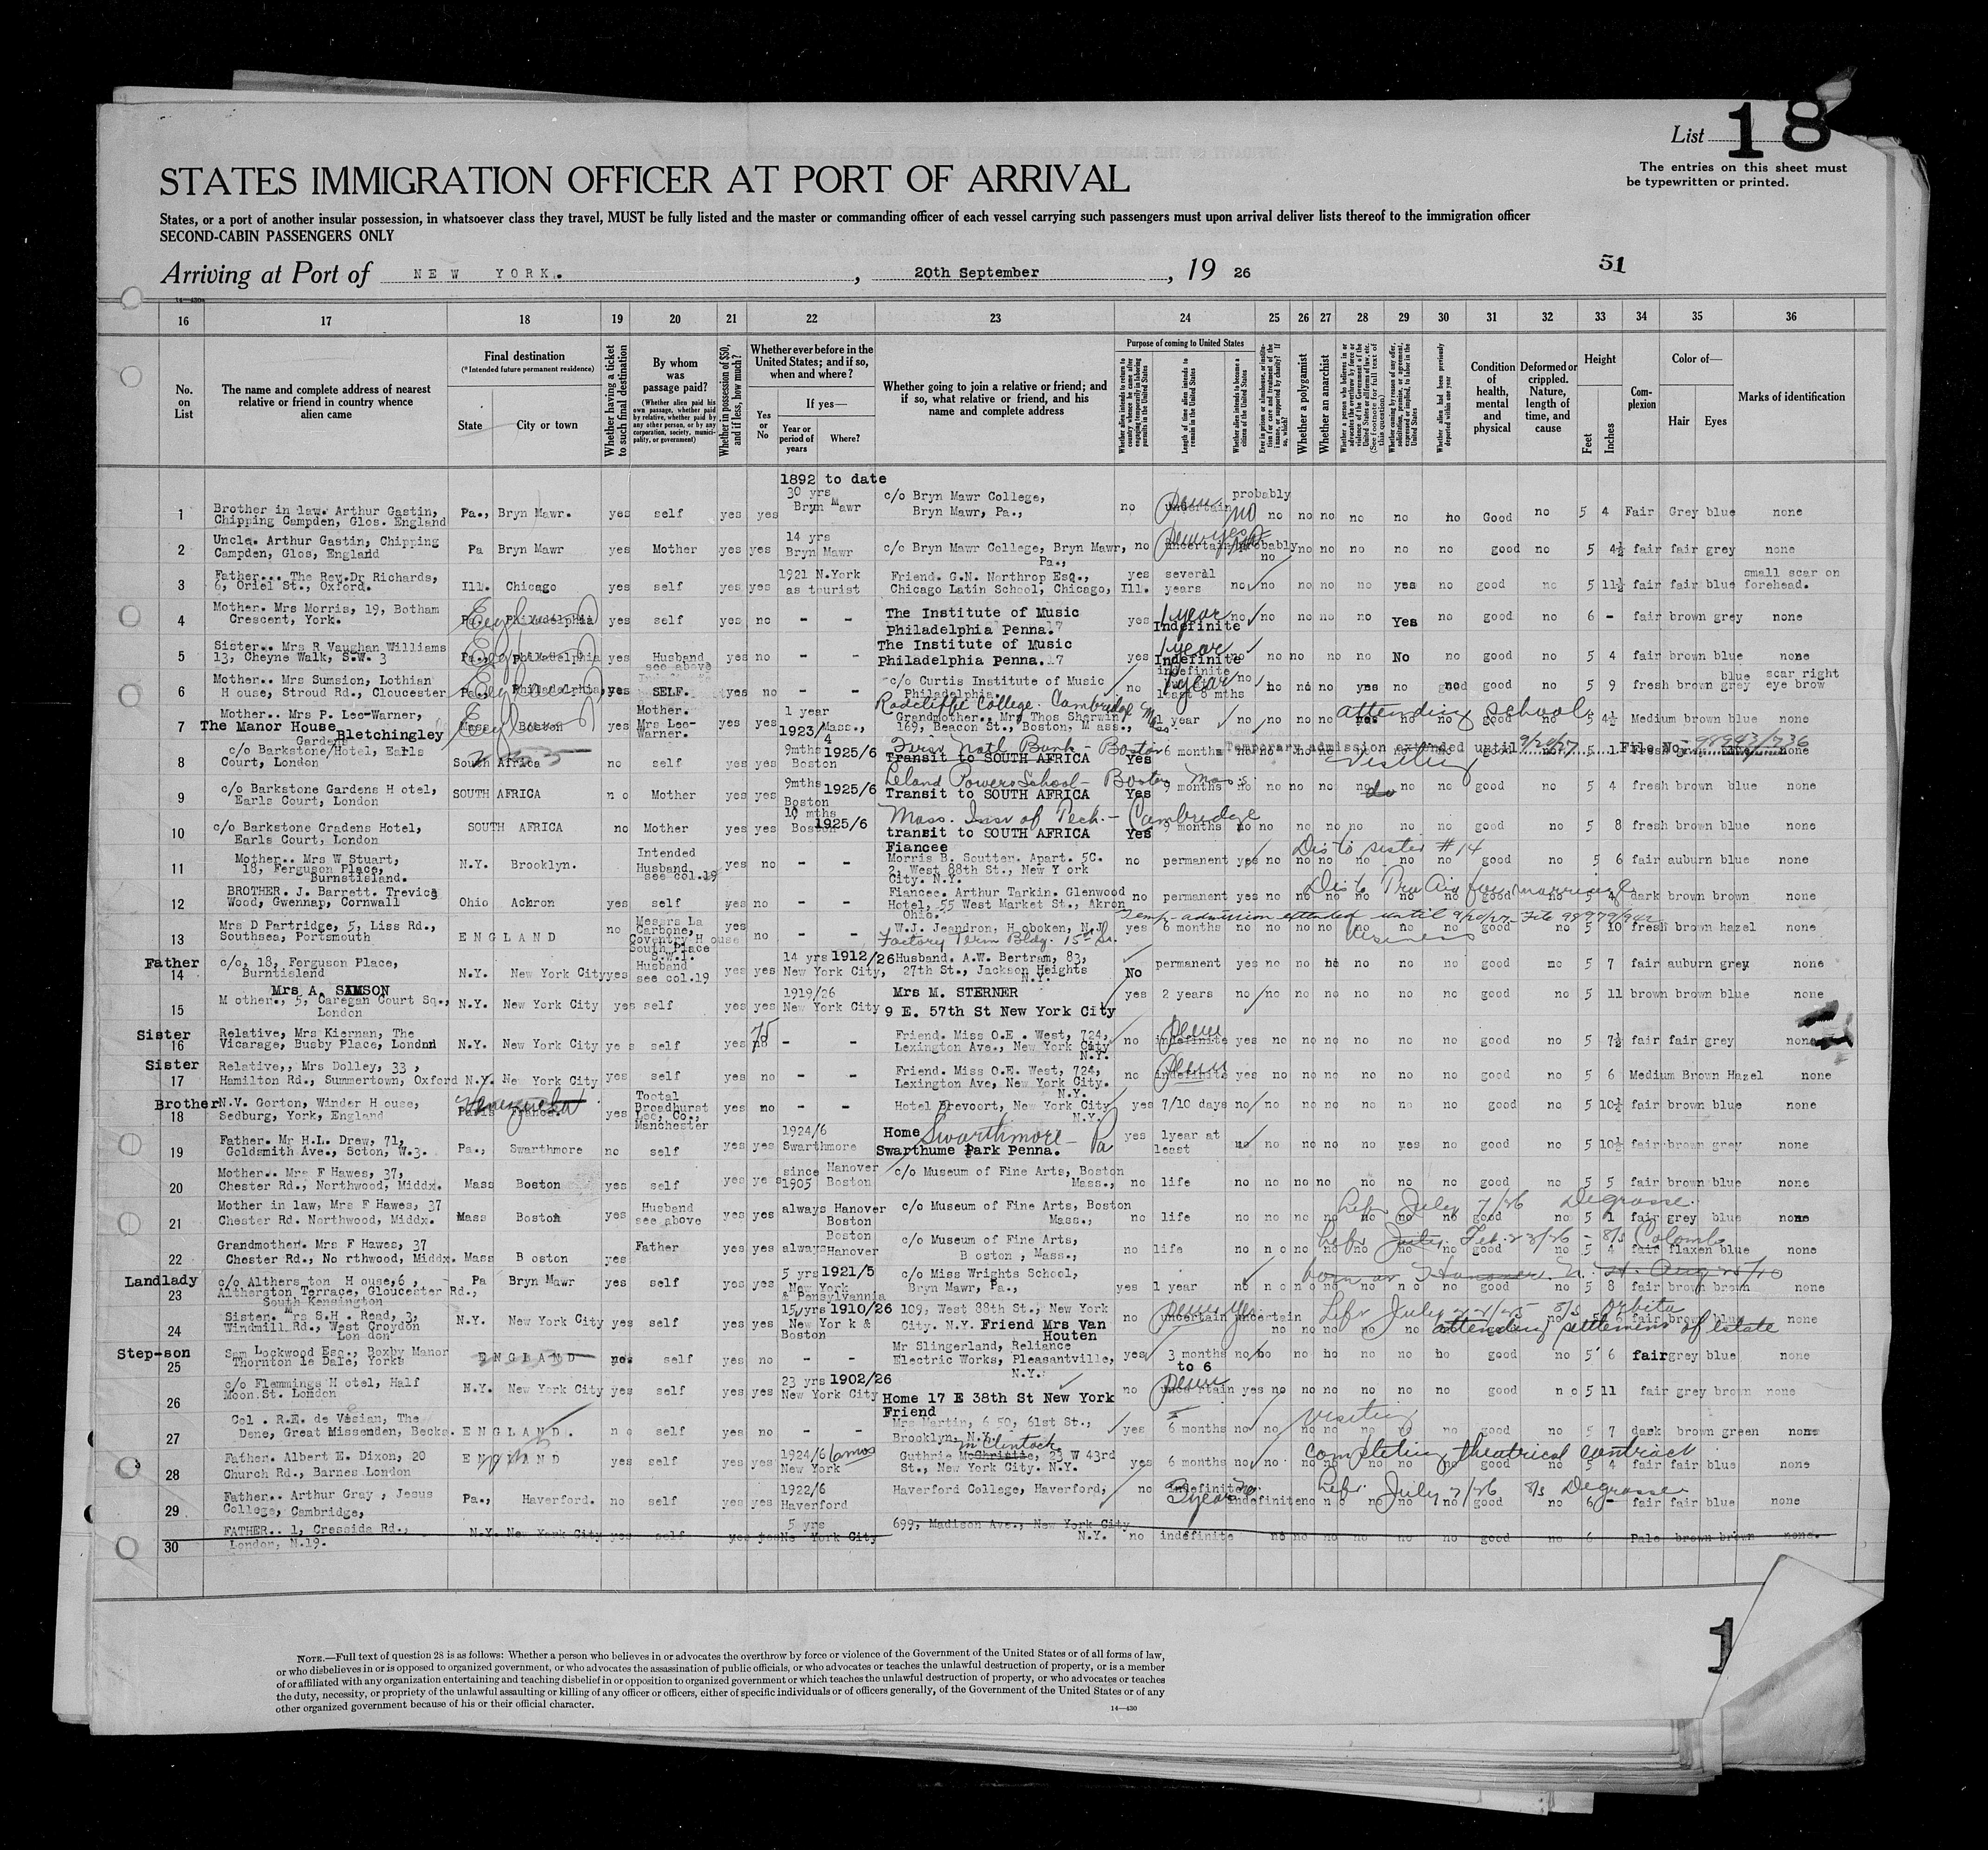 List 18
The entries on this sheet must
be typewritten or printed.
STATES IMMIGRATION OFFICER AT PORT OF ARRIVAL
States, or a port of another insular possession, in whatsoever class they travel, MUST be fully listed and the master or commanding officer of each vessel carrying such passengers must upon arrival deliver lists thereof to the immigration officer
SECOND-CABIN PASSENGERS ONLY
Arriving at Port of NEW YORK. , 20th September , 19 26
51
14—430
16 17 18 19 20 21 22 23 24 25 26 27 28 29 30 31 32 33 34 35 36
No. on List
The name and complete address of nearest relative or friend in country whence alien came
Final destination
(*Intended future permanent residence)
State City or town
Whether having a ticket to such final destination
By whom was passage paid?
(Whether alien paid his own passage, whether paid by relative, whether paid by any other person, or by any corporation, society, municipality, or government)
Whether in possession of $50, and if less, how much?
Whether ever before in the United States; and if so, when and where?
Yes or No
If yes—
Year or period of years Where?
Whether going to join a relative or friend; and if so, what relative or friend, and his name and complete address
Purpose of coming to United States
Length of time alien intends to remain in the United States
Whether alien intends to become a citizen of the United States
Whether a polygamist
Whether an anarchist
Condition of health, mental and physical
Deformed or crippled. Nature, length of time, and cause
Height
Feet Inches
Complexion
Color of—
Hair Eyes
Marks of identification
1892 to date
1 Brother in law. Arthur Gastin, Chipping Campden, Glos. England Pa., Bryn Mawr. yes self yes yes 30 yrs Bryn Mawr c/o Bryn Mawr College, Bryn Mawr, Pa., no uncertain probably no no no no no no no Good no 5 4 Fair Grey blue none
2 Uncle. Arthur Gastin, Chipping Campden, Glos, England Pa Bryn Mawr yes Mother yes yes 14 yrs Bryn Mawr c/o Bryn Mawr College, Bryn Mawr, Pa., no uncertain probably no no no no no no good no 5 4½ fair fair grey none
3 Father... The Rev.Dr Richards, 6, Oriel St., Oxford. Ill. Chicago yes self yes yes 1921 N.York as tourist Friend. G.N. Northrop Esq., Chicago Latin School, Chicago, Ill. yes several years no no no no no yes no good no 5 11½ fair fair blue small scar on forehead.
4 Mother. Mrs Morris, 19, Botham Crescent, York. Pa. Philadelphia yes self yes no - - The Institute of Music Philadelphia Penna. yes 1 year Indefinite no no no no no Yes no good no 6 - fair brown grey none
5 Sister.. Mrs R Vaughan Williams 13, Cheyne Walk, S.W. 3 Pa., Philadelphia yes Husband see above yes no - - The Institute of Music Philadelphia Penna. yes 1 year Indefinite no no no no no No no good no 5 4 fair brown blue none
6 Mother.. Mrs Sumsion, Lothian House, Stroud Rd., Gloucester Pa., Philadelphia, yes SELF. yes no - - c/o Curtis Institute of Music Philadelphia. no indefinite 1 year least 6 mths no no no no yes no no good no 5 9 fresh brown grey blue scar right eye brow
7 Mother.. Mrs P. Lee-Warner, The Manor House Bletchingley Mass. Boston yes Mother. Mrs Lee-Warner. yes yes 1 year 1923/4 Mass., Radcliffe College. Cambridge Mass. Grandmother.. Mrs Thos Sherwin, 169, Beacon St., Boston, Mass., 1 year no no no no attending school no no good no 5 4½ Medium brown blue none
Temporary admission extended until 9/20/27 File No. 98943/736
8 c/o Barkstone Gardens Hotel, Earls Court, London South Africa no self yes yes 9mths 1925/6 Boston First Natl Bank - Boston Transit to SOUTH AFRICA Yes 6 months visiting 5 1 none
9 c/o Barkstone Gardens Hotel, Earls Court, London SOUTH AFRICA no Mother yes yes 9mths 1925/6 Boston Leland Powers School - Boston Mass. Transit to SOUTH AFRICA Yes 9 months no no no no no do no no good no 5 4 fresh brown blue none
10 c/o Barkstone Gradens Hotel, Earls Court, London SOUTH AFRICA no Mother yes yes 10 mths 1925/6 Boston Mass. Inst of Tech. - Cambridge transit to SOUTH AFRICA Yes 9 months no no no no no no no good no 5 8 fresh brown blue none
11 Mother.. Mrs W Stuart, 18, Ferguson Place, Burnstisland. N.Y. Brooklyn. Intended Husband see col.19 yes no - - Fiancee Morris B. Soutten. Apart. 5C. 21 West 88th St., New York City. N.Y. no permanent yes no no no no no no good no 5 6 fair auburn blue none
Dis to sister #14
12 BROTHER. J. Barrett. Trevice Wood, Gwennap, Cornwall Ohio Ackron yes self yes no - - Fiancee. Arthur Tarkin. Glenwood Hotel, 55 West Market St., Akron Ohio. no permanent yes no no no no no no good no 5 4 dark brown brown none
Temp- admission extended until 9/20/27 File 98979/942
13 Mrs D Partridge, 5, Liss Rd., Southsea, Portsmouth ENGLAND no Messrs La Carbone, Coventry House South Place S.W.1. yes no - - W.J. Jeandron, Hoboken, N.J Factory Term Bldg. 15th St. yes 6 months no no no no no no no good no 5 10 fresh brown hazel none
Business
14 Father c/o, 18, Ferguson Place, Burntisland N.Y. New York City yes Husband see col.19 yes yes 14 yrs 1912/26 New York City, Husband. A.W. Bertram, 83, 27th St., Jackson Heights N.Y. No permanent yes no no no no no no good no 5 7 fair auburn grey none
15 Mrs A. SAMSON Mother., 5, Caregan Court Sq., London N.Y. New York City yes self yes yes 1919/26 New York City Mrs M. STERNER 9 E. 57th St New York City yes 2 years no no no no no no no good no 5 11 brown brown blue none
16 Sister Relative, Mrs Kiernan, The Vicarage, Busby Place, London N.Y. New York City yes self yes no - - Friend. Miss O.E. West, 724, Lexington Ave., New York City N.Y. no indefinite yes no no no no no no good no 5 7½ fair fair grey none
17 Sister Relative,, Mrs Dolley, 33, Hamilton Rd., Summertown, Oxford N.Y. New York City yes self yes no - - Friend. Miss O.E. West, 724, Lexington Ave, New York City. N.Y. no indefinite yes no no no no no no good no 5 6 Medium Brown Hazel none
18 Brother N.V. Gorton, Winder House, Sedburg, York, England Paris France. yes Tootal Broadhurst Lee, Co., Manchester yes no - - Hotel Brevoort, New York City N.Y. yes 7/10 days no no no no no no no good no 5 10½ fair brown blue none
19 Father. Mr H.L. Drew, 71, Goldsmith Ave., Scton, W.3. Pa., Swarthmore no self yes yes 1924/6 Swarthmore Home Swarthmore - Pa Swarthume Park Penna. yes 1year at least no no no no no yes no good no 5 10½ fair brown grey none
20 Mother.. Mrs F Hawes, 37, Chester Rd., Northwood, Middx. Mass Boston yes self yes yes since 1905 Hanover Boston c/o Museum of Fine Arts, Boston Mass., no life no no no no no no no good no 5 5 fair brown blue none
21 Mother in law, Mrs F Hawes, 37 Chester Rd. Northwood, Middx. Mass Boston yes Husband see above yes yes always Hanover Boston c/o Museum of Fine Arts, Boston Mass., no life no no no no no no no good no 5 1 fair grey blue none
Left July 7/26 Degrasse.
22 Grandmother. Mrs F Hawes, 37 Chester Rd., Northwood, Middx. Mass Boston yes Father yes yes always Boston Hanover c/o Museum of Fine Arts, Boston, Mass., no life no no no no no no no good no 5 4 fair flaxen blue none
23 Landlady c/o Altherston House,6, Altherston Terrace, Gloucester Rd., South Kensington Pa Bryn Mawr yes self yes yes 5 yrs 1921/5 New York & Pensylvannia c/o Miss Wrights School, Bryn Mawr, Pa., yes 1 year no no no no no no no good no 5 8 fair brown brown none
24 Sister. Mrs S.H. Read, 3, Windmill Rd., West Croydon London N.Y. New York City yes self yes yes 15 yrs 1910/26 New York & Boston 109, West 88th St., New York City. N.Y. Friend Mrs Van Houten no uncertain uncertain no no no no no 5 6 fair brown blue none
attending settlement of estate
25 Step-son Sam Lockwood Esq., Roxby Manor Thornton le Dale, Yorks ENGLAND self yes no - - Mr Slingerland, Reliance Electric Works, Pleasantville, N.Y. yes 3 months to 6 no no no no no no no good no 5 6 fair grey blue none
26 c/o Flemmings Hotel, Half Moon St. London N.Y. New York City yes self yes yes 23 yrs 1902/26 New York City Home 17 E 38th St New York no uncertain yes no no no no no no good no 5 11 fair grey brown none
27 Col. R.E. de Vesian, The Dene, Great Missenden, Becks. ENGLAND. no self yes no - - Friend Mrs Martin, 650, 61st St., Brooklyn, N.Y. yes 6 months no no visiting no no no no good no 5 7 dark brown green none
28 Father. Albert E. Dixon, 20 Church Rd., Barnes London ENGLAND yes self yes yes 1924/6 New York Guthrie McClintock, 23 W 43rd St., New York City. N.Y. yes 6 months no no completing theatrical contract 5 4 fair fair blue none
29 Father.. Arthur Gray, Jesus College, Cambridge, Pa., Haverford. no self yes yes 1922/6 Haverford Haverford College, Haverford, no indefinite indefinite no no no no no no good no 6 - fair fair blue none
Left July 7/26 S/S Degrasse
30 FATHER.. 1, Cressida Rd., London, N.19. N.Y. New York City yes self yes yes 5 yrs New York City 699, Madison Ave., New York City N.Y. no indefinite no no no no no no good no 6 - Pale brown brown none.
NOTE.—Full text of question 28 is as follows: Whether a person who believes in or advocates the overthrow by force or violence of the Government of the United States or of all forms of law,
or who disbelieves in or is opposed to organized government, or who advocates the assassination of public officials, or who advocates or teaches the unlawful destruction of property, or is a member
of or affiliated with any organization entertaining and teaching disbelief in or opposition to organized government or which teaches the unlawful destruction of property, or who advocates or teaches
the duty, necessity, or propriety of the unlawful assaulting or killing of any officer or officers, either of specific individuals or of officers generally, of the Government of the United States or of any
other organized government because of his or their official character.
14—430
1